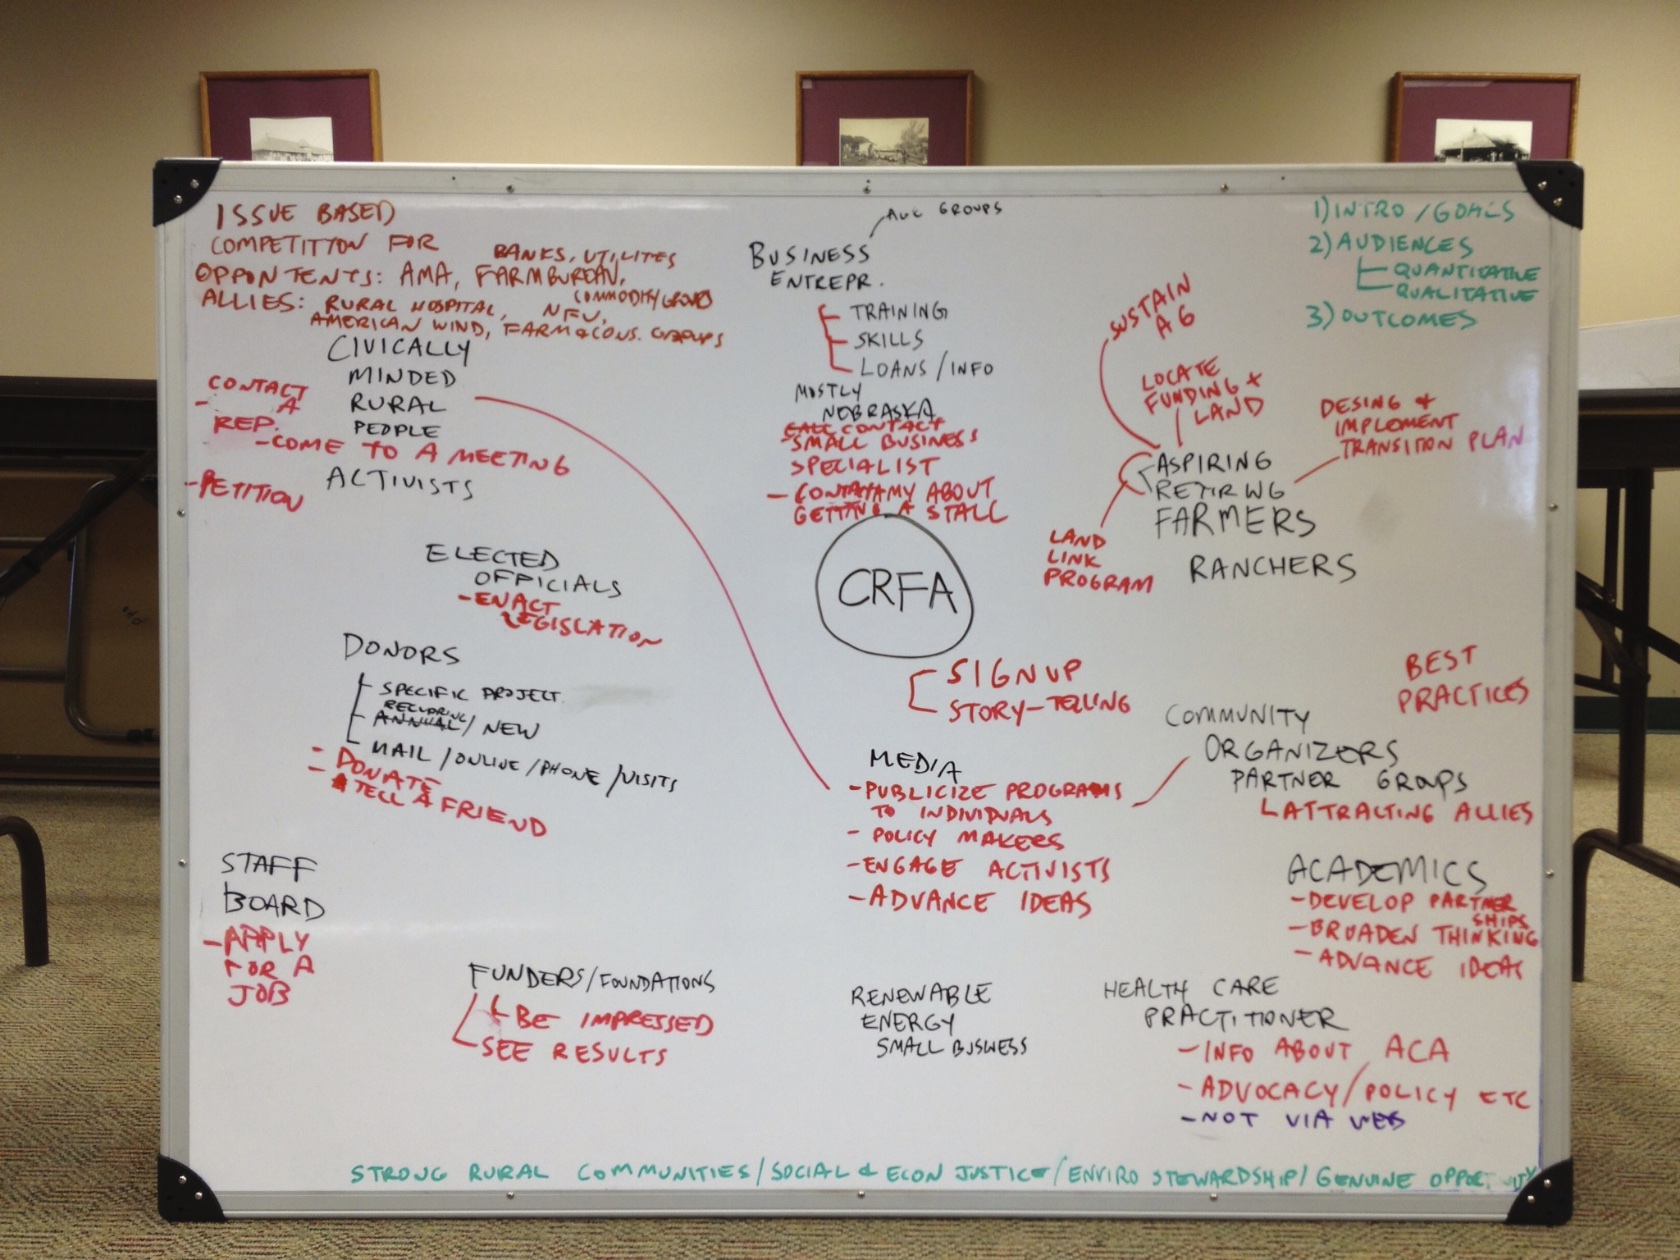 ISSUE BASED
COMPETITION FOR
OPPONTENTS: AMA, FARM BUREAU,
BANKS, UTILITES
COMMODITY GROUPS
ALLIES: RURAL HOSPITAL, NFU,
AMERICAN WIND, FARM & CONS. GROUPS
CIVICALLY
MINDED
RURAL
PEOPLE
ACTIVISTS
CONTACT
A
REP.
-COME TO A MEETING
-PETITION
ELECTED
OFFICIALS
-ENACT
LEGISLATION
DONORS
SPECIFIC PROJECT
RECURRING
ANNUAL/NEW
MAIL/ONLINE/PHONE/VISITS
-DONATE
- TELL A FRIEND
STAFF
BOARD
-APPLY
FOR A
JOB
FUNDERS/FOUNDATIONS
BE IMPRESSED
SEE RESULTS
GROUPS
BUSINESS
ENTREPR.
TRAINING
SKILLS
LOANS/INFO
MOSTLY
NEBRASKA
CALL CONTACT
SMALL BUSINESS
SPECIALIST
- AMY ABOUT
GETTING A STALL
CRFA
SIGN UP
STORY-TELLING
MEDIA
-PUBLICIZE PROGRAMS
TO INDIVIDUALS
- POLICY MAKERS
-ENGAGE ACTIVISTS
-ADVANCE IDEAS
RENEWABLE
ENERGY
SMALL BUSINESS
1) INTRO/GOALS
2) AUDIENCES
QUANTITATIVE
QUALITATIVE
3) OUTCOMES
SUSTAIN
AG
LOCATE
FUNDING +
LAND
DESING +
IMPLEMENT
TRANSITION PLAN
ASPIRING
RETIRING
FARMERS
RANCHERS
LAND
LINK
PROGRAM
BEST
PRACTICES
COMMUNITY
ORGANIZERS
PARTNER GROUPS
ATTRACTING ALLIES
ACADEMICS
-DEVELOP PARTNER
SHIPS
-BROADEN THINKING
-ADVANCE IDEAS
HEALTH CARE
PRACTITIONER
-INFO ABOUT ACA
-ADVOCACY/POLICY ETC
-NOT VIA WEB
STRONG RURAL COMMUNITIES/SOCIAL & ECON JUSTICE/ENVIRO STEWARDSHIP/GENUINE OPPORTUNITY